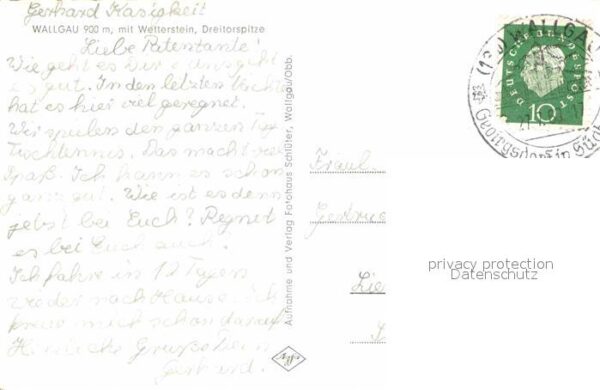 Gerhard Kasigkeit
WALLGAU 900 m, mit Wetterstein, Dreitorspitze
Liebe Patentante!
Wie geht es Dir? Uns geht
es gut. In den letzten
hat es hier viel geregnet.
Wir spielen den ganzen Tag
Tischtennis. Das macht viel
Spaß. Ich kann es schon
ganz gut. Wie ist es denn
jetzt bei Euch? Regnet
es bei Euch auch.
Ich fahre in 12 Tagen
wieder nach Hause. Ich
freue mich schon darauf.
Herzliche Grüße Dein
Gerhard.
Aufnahme und Verlag Fotohaus Schlüter, Wallgau/Obb.
DEUTSCHE BUNDESPOST
10
WALLGAU
Fräul
Gertrud
Lie
privacy protection
Datenschutz